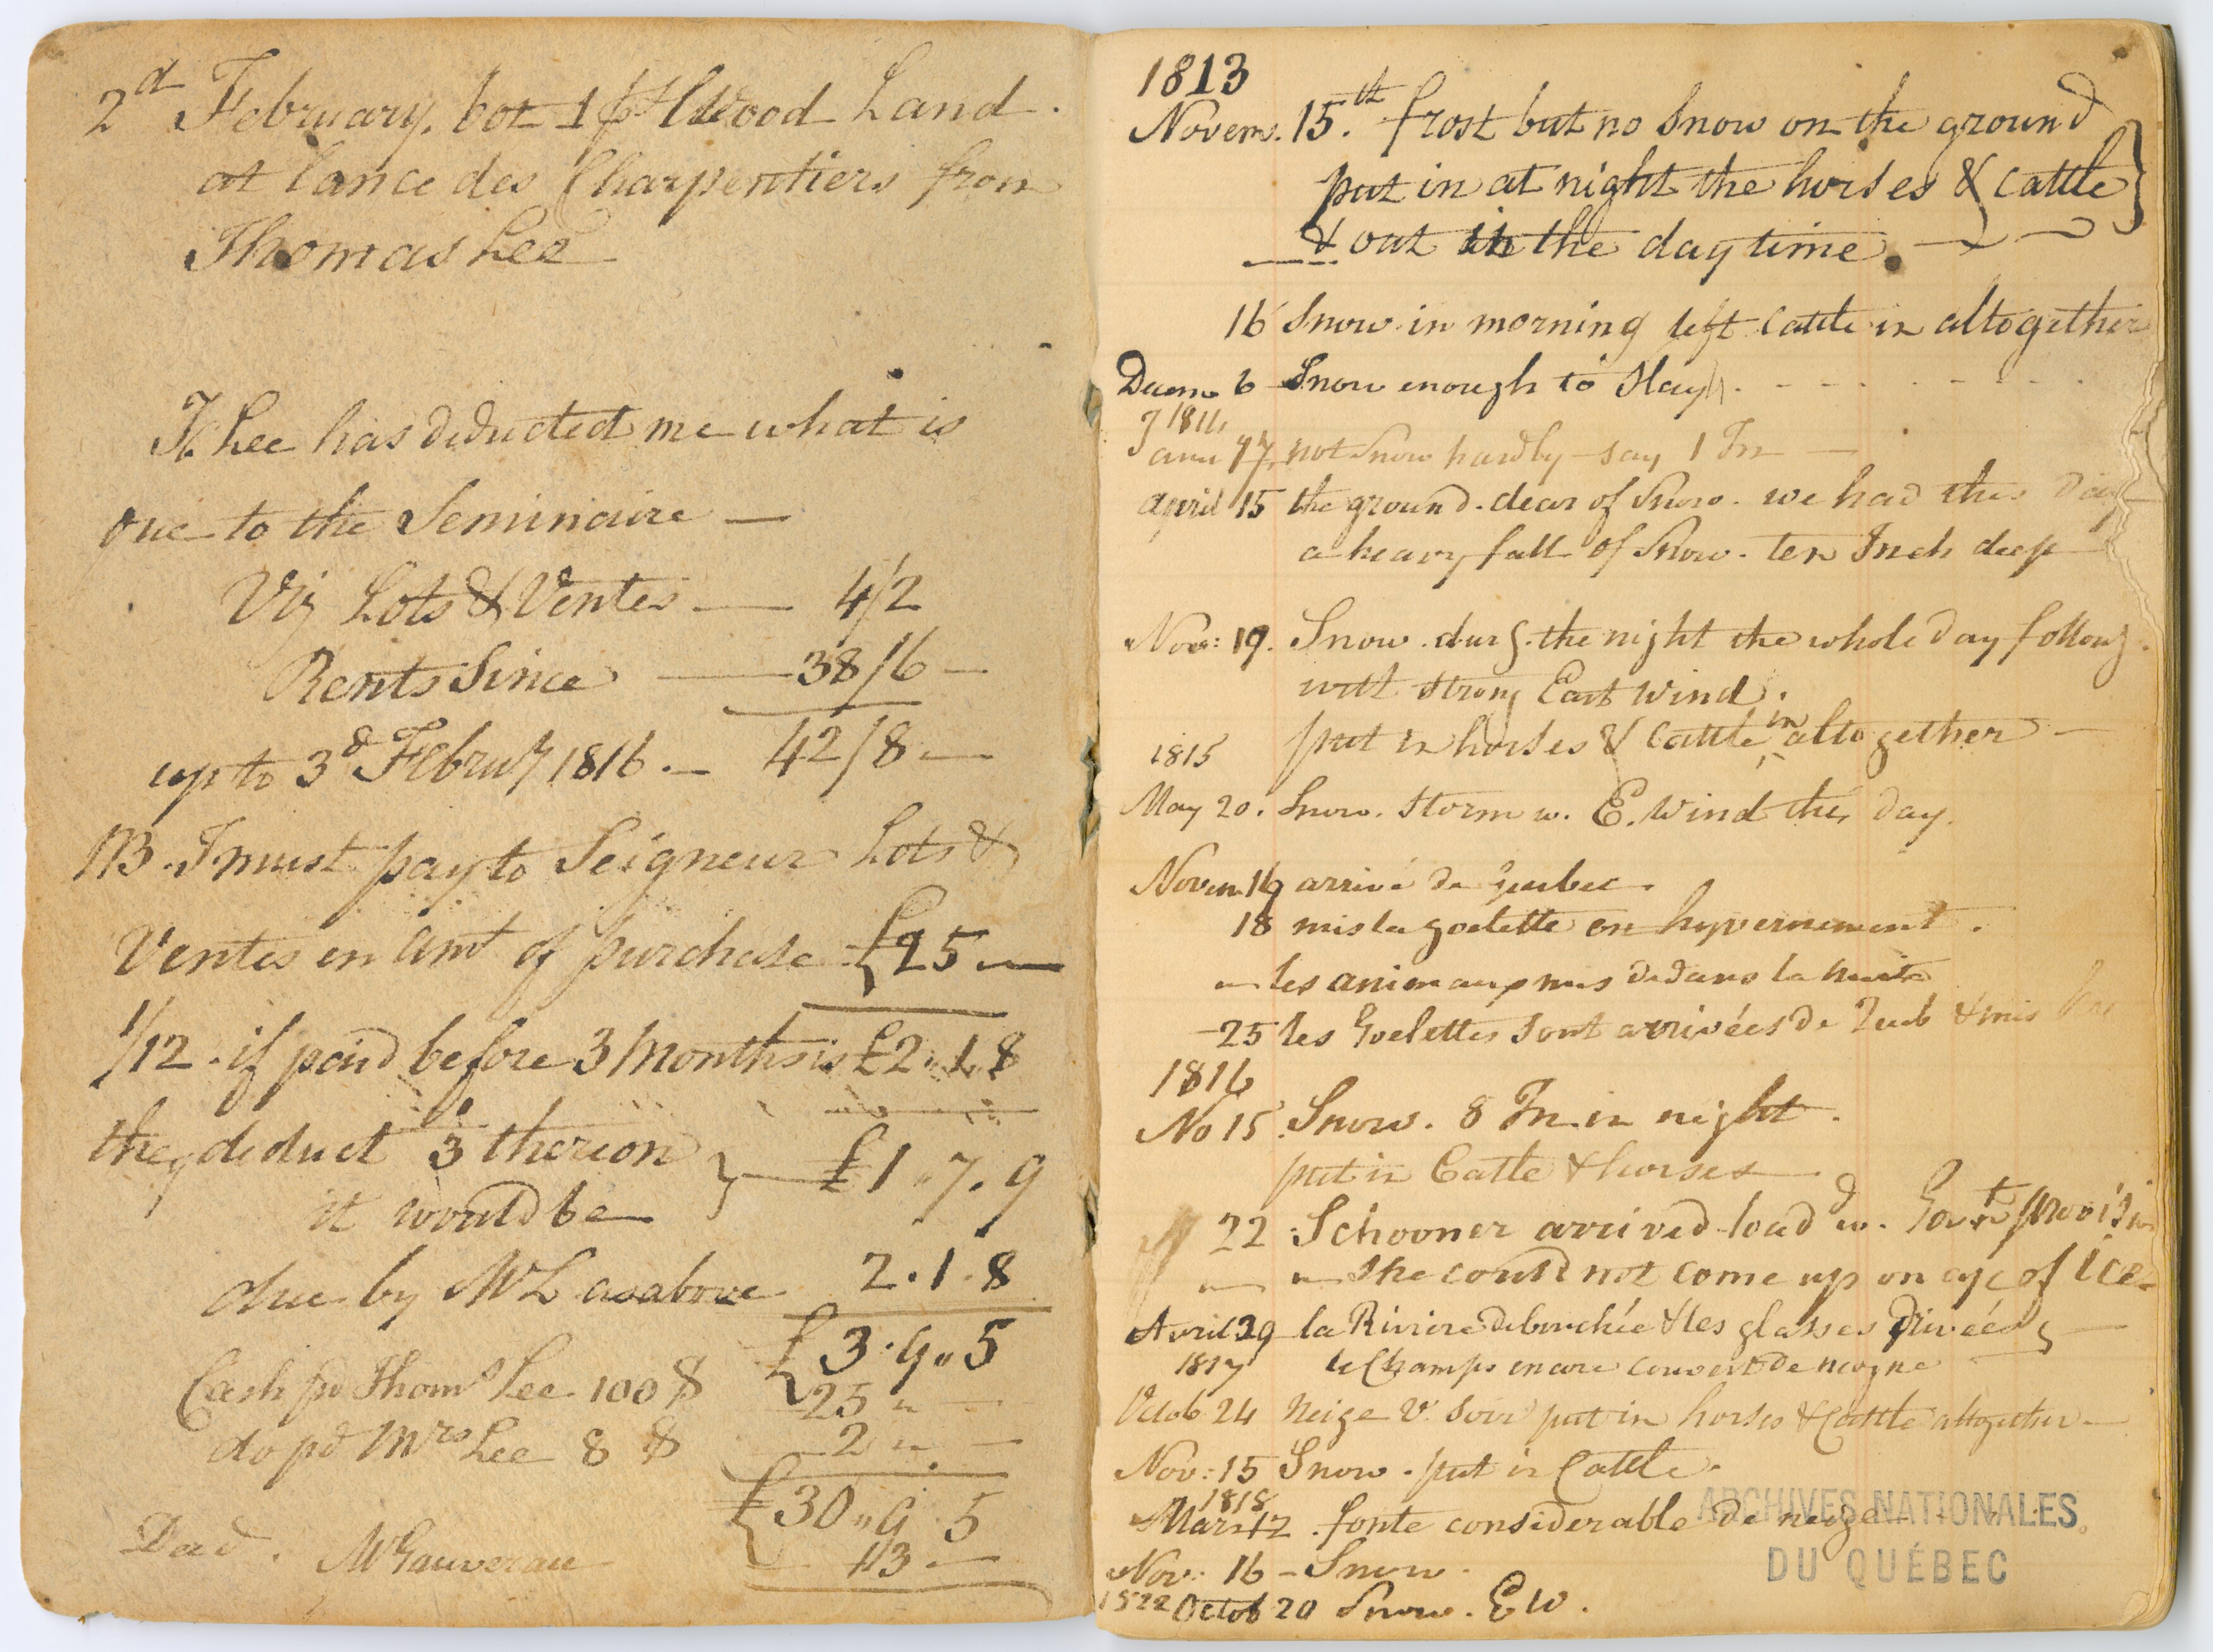 2d February, bot 1 ps Wood Land.
at Lance des Charpentiers from
Thomas Lee
Th Lee has deducted me what is
due to the Seminaire —
Viz Lots & Ventes — 4/2
Rents Since — 38/6 —
up to 3d Februy 1816. — 42/8 —
NB. I must pay to Seigneur Lots &
Ventes on Amt of purchase £25 —
1/12. if paid before 3 Months is £2.1.8
they deduct 1/3 thereon
it would be } — £1.7.9
due by Mr L as above 2.1.8
£3.9.5
Cash pd Thoms Lee 100 $ 25 " —
do pd Mrs Lee 8 $ 2 " —
£30 " 9.5
Dad. Mr Gauvreau 13 —
1813
Novem. 15.th frost but no Snow on the ground
put in at night the horses & cattle }
& out in the day time. —
16 Snow in morning left cattle in altogether
Decem 6 Snow enough to Slay
1814
Janu 17 not Snow hardly – say 1 In —
April 15 the ground clear of Snow. we had this day
a heavy fall of Snow. ten Inch deep
Nov: 19. Snow durg. the night the whole day followg.
with strong East Wind.
put in horses & Cattle in altogether —
1815
May 20. Snow. Storm w. E. Wind this day.
Novem 16 arrivé de Quebec.
18 mis la goelette en hyvernement.
" les animaux mis dedans la nuite
25 les Goelettes sont arrivées de Queb & mis
1816
No 15 Snow. 8 In in night.
put in Catle & horses
22 Schooner arrived load'd w. Govt provision
" " She could not come up on a/c of Ice
Avril 29 la Riviere debouchée & les glasses Drivées —
1817 le Champs encore couvert de neigne
Octob 24 Neige v. soir put in horses & Cattle altogether —
Nov: 15 Snow. put in Cattle.
1818
Mars 12. fonte considerable de neige
Nov: 16 – Snow.
1822 Octob 20 Snow. E W.
ARCHIVES NATIONALES
DU QUÉBEC